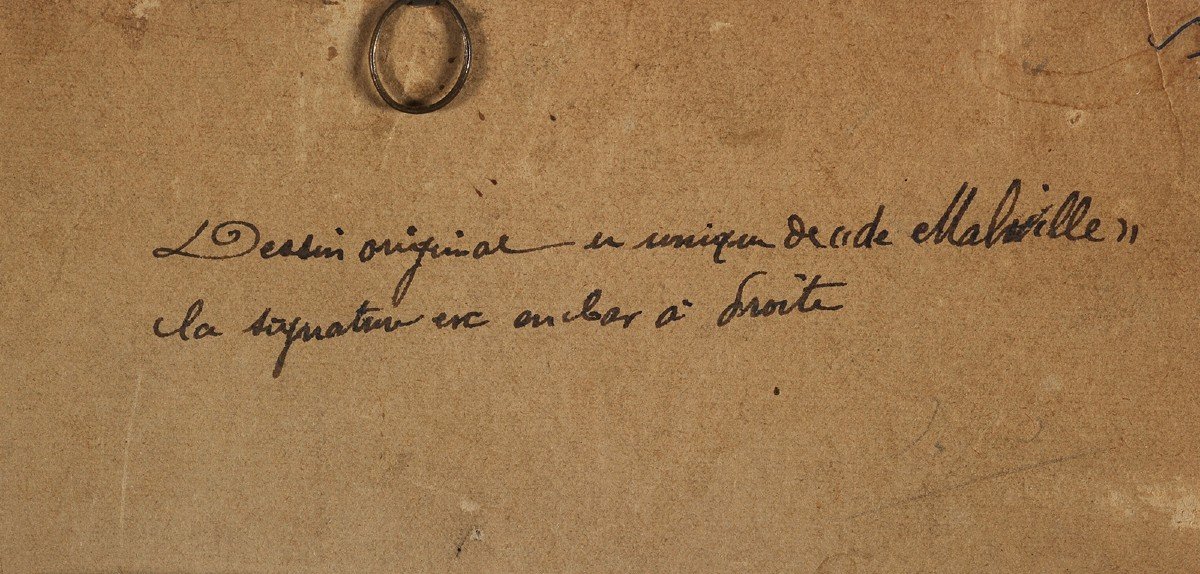 Dessin original et unique de « de Malville »
la signature est en bas à droite